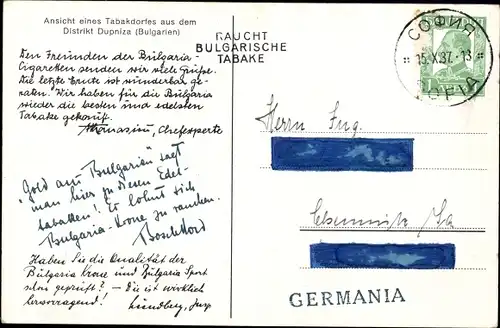 Ansicht eines Tabakdorfes aus dem
Distrikt Dupniza (Bulgarien)
RAUCHT
BULGARISCHE
TABAKE
СОФИЯ
15.X.37.-13
SOFIA
Den Freunden der Bulgaria-
Cigaretten senden wir viele Grüsse.
Die letzte Ernte ist wunderbar ge-
raten. Wir haben für die Bulgaria
wieder die besten und edelsten
Tabake gekauft.
Athanasiu, Chefexperte
"Gold aus Bulgarien" sagt
man hier zu diesen Edel-
tabaken! Es lohnt sich
Bulgaria-Krone zu rauchen.
Haben Sie die Qualität der
Bulgaria Krone und Bulgaria Sport
schon geprüft? – die ist wirklich
hervorragend! Lundberg,
Herrn Ing.
Chemnitz Sa
GERMANIA